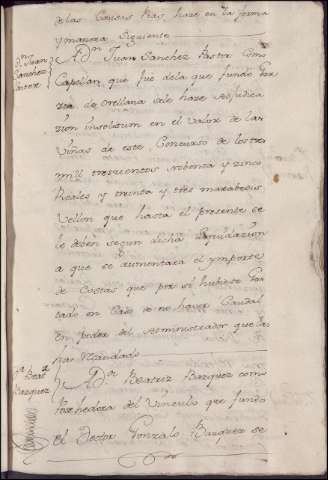 de las Causas Rag.s hace en la forma
y manera siguiente
Dn. Juan
Sanchez
Pastor
A Dn. Juan Sanchez Pastor Como
Capellan que fue de la que fundo
de Orellana se le hace Adjudica
zion insolutum en el valor de las
Viñas de este Concurso de los tres
mill trescientos ochenta y zinco
Reales y treinta y tres maravedis
Vellon que hasta el presente se
le deben segun dicha liquidazion
a que se aumentara el ymporte
de Costas que por si hubiese
tado en Caso de no haver Caudal
en poder del Administrador que las
han Mandado
Da. Beatriz
Bazquez
A Da. Beatriz Bazquez como
Poshedora del Vinculo que fundo
el Doctor Gonzalo Bazquez se